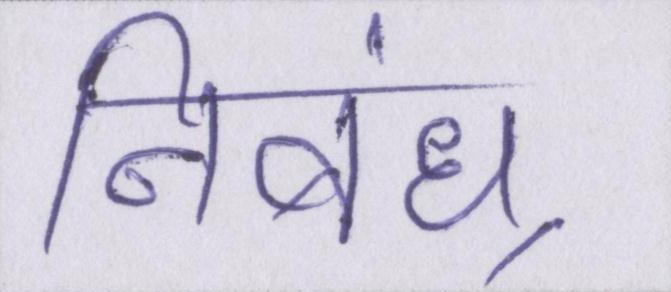 निबंध,